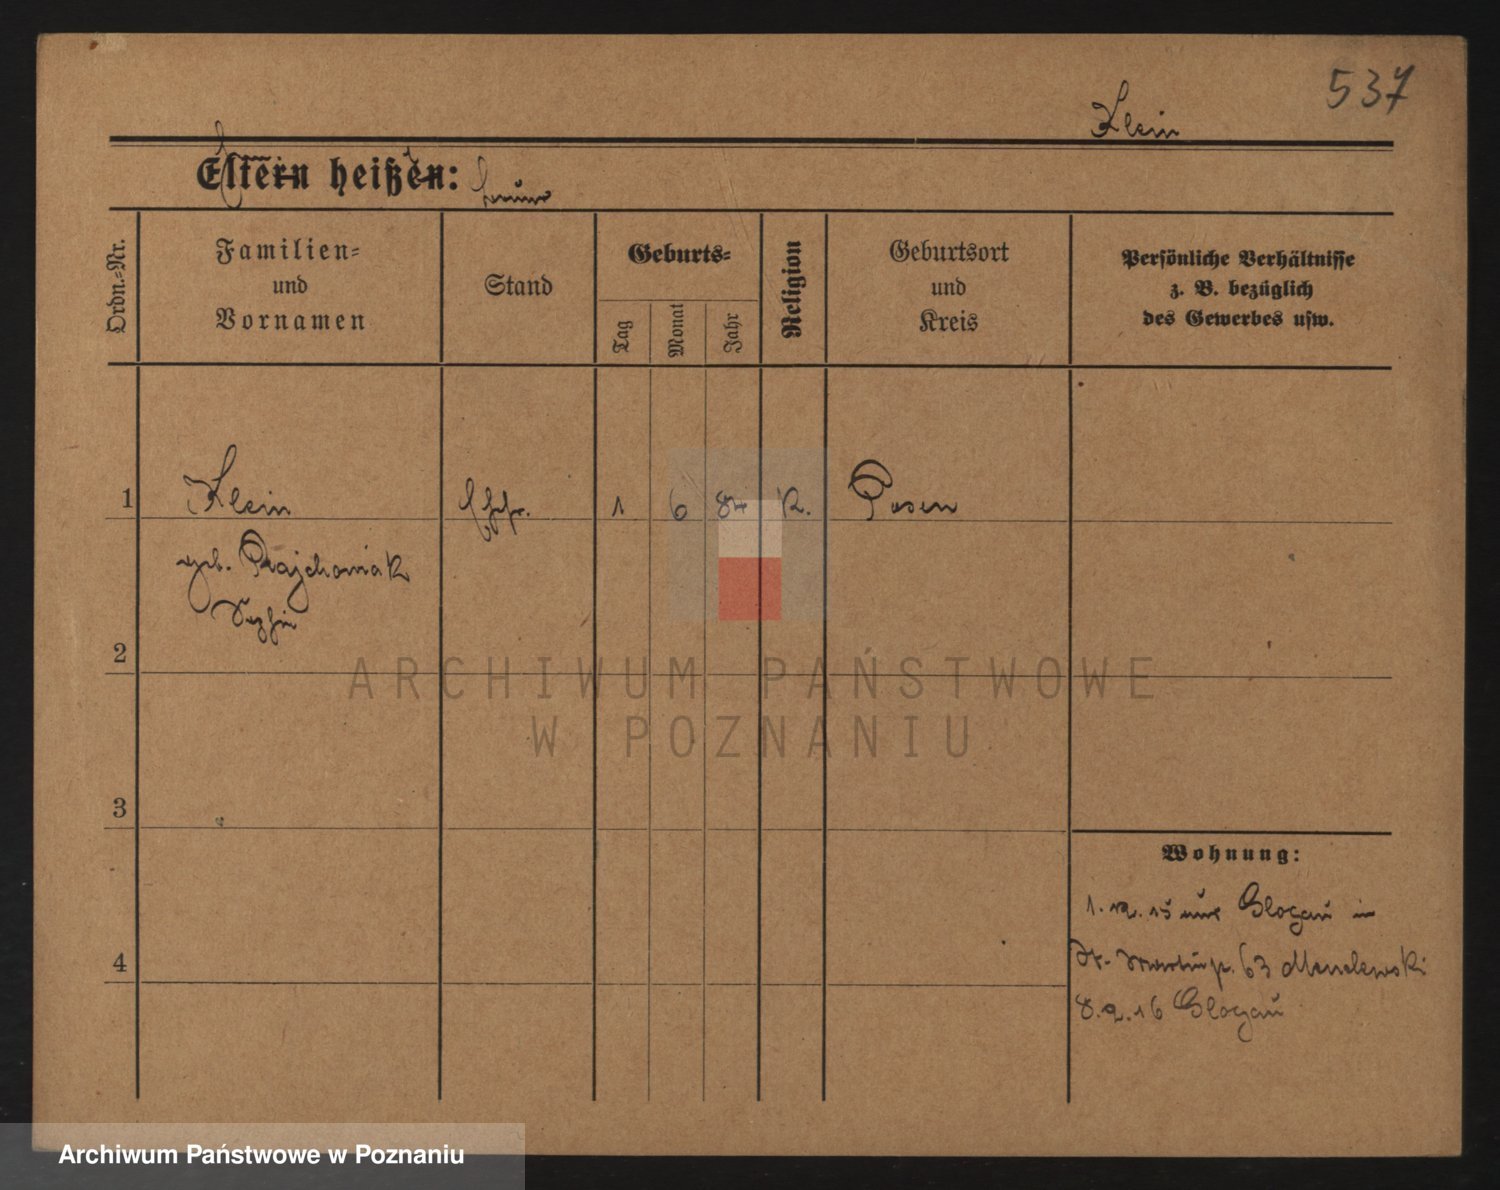 537
Klein
Eltern heißen:
Ordn.-Nr.
Familien-
und
Vornamen
Stand
Geburts-
Tag
Monat
Jahr
Religion
Geburtsort
und
Kreis
Persönliche Verhältnisse
z. B. bezüglich
des Gewerbes usw.
1
Klein
Ehefr.
1
6
84
K.
Posen
geb. Rajchowiak
Sophie
2
ARCHIWUM PAŃSTWOWE
W POZNANIU
3
Wohnung:
1. 12. 15 aus Glogau in
St. Martinstr. 63
4
8. 2. 16 Glogau
Archiwum Państwowe w Poznaniu